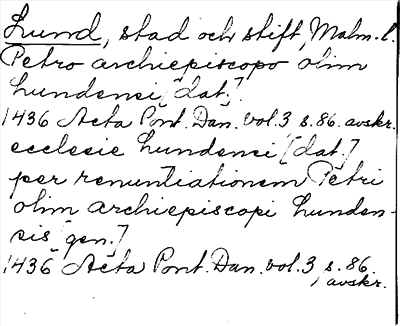 Lund, stad och stift, Malm. l.
Petro archiepiscopo olim
Lundensi [dat.].
1436 Acta Pont. Dan. vol. 3, s. 86. avskr.
ecclesie Lundensi [dat.]
per renuntiationem Petri
olim archiepiscopi Lunden-
sis [gen.]
1436 Acta Pont. Dan. vol. 3, s. 86.
avskr.